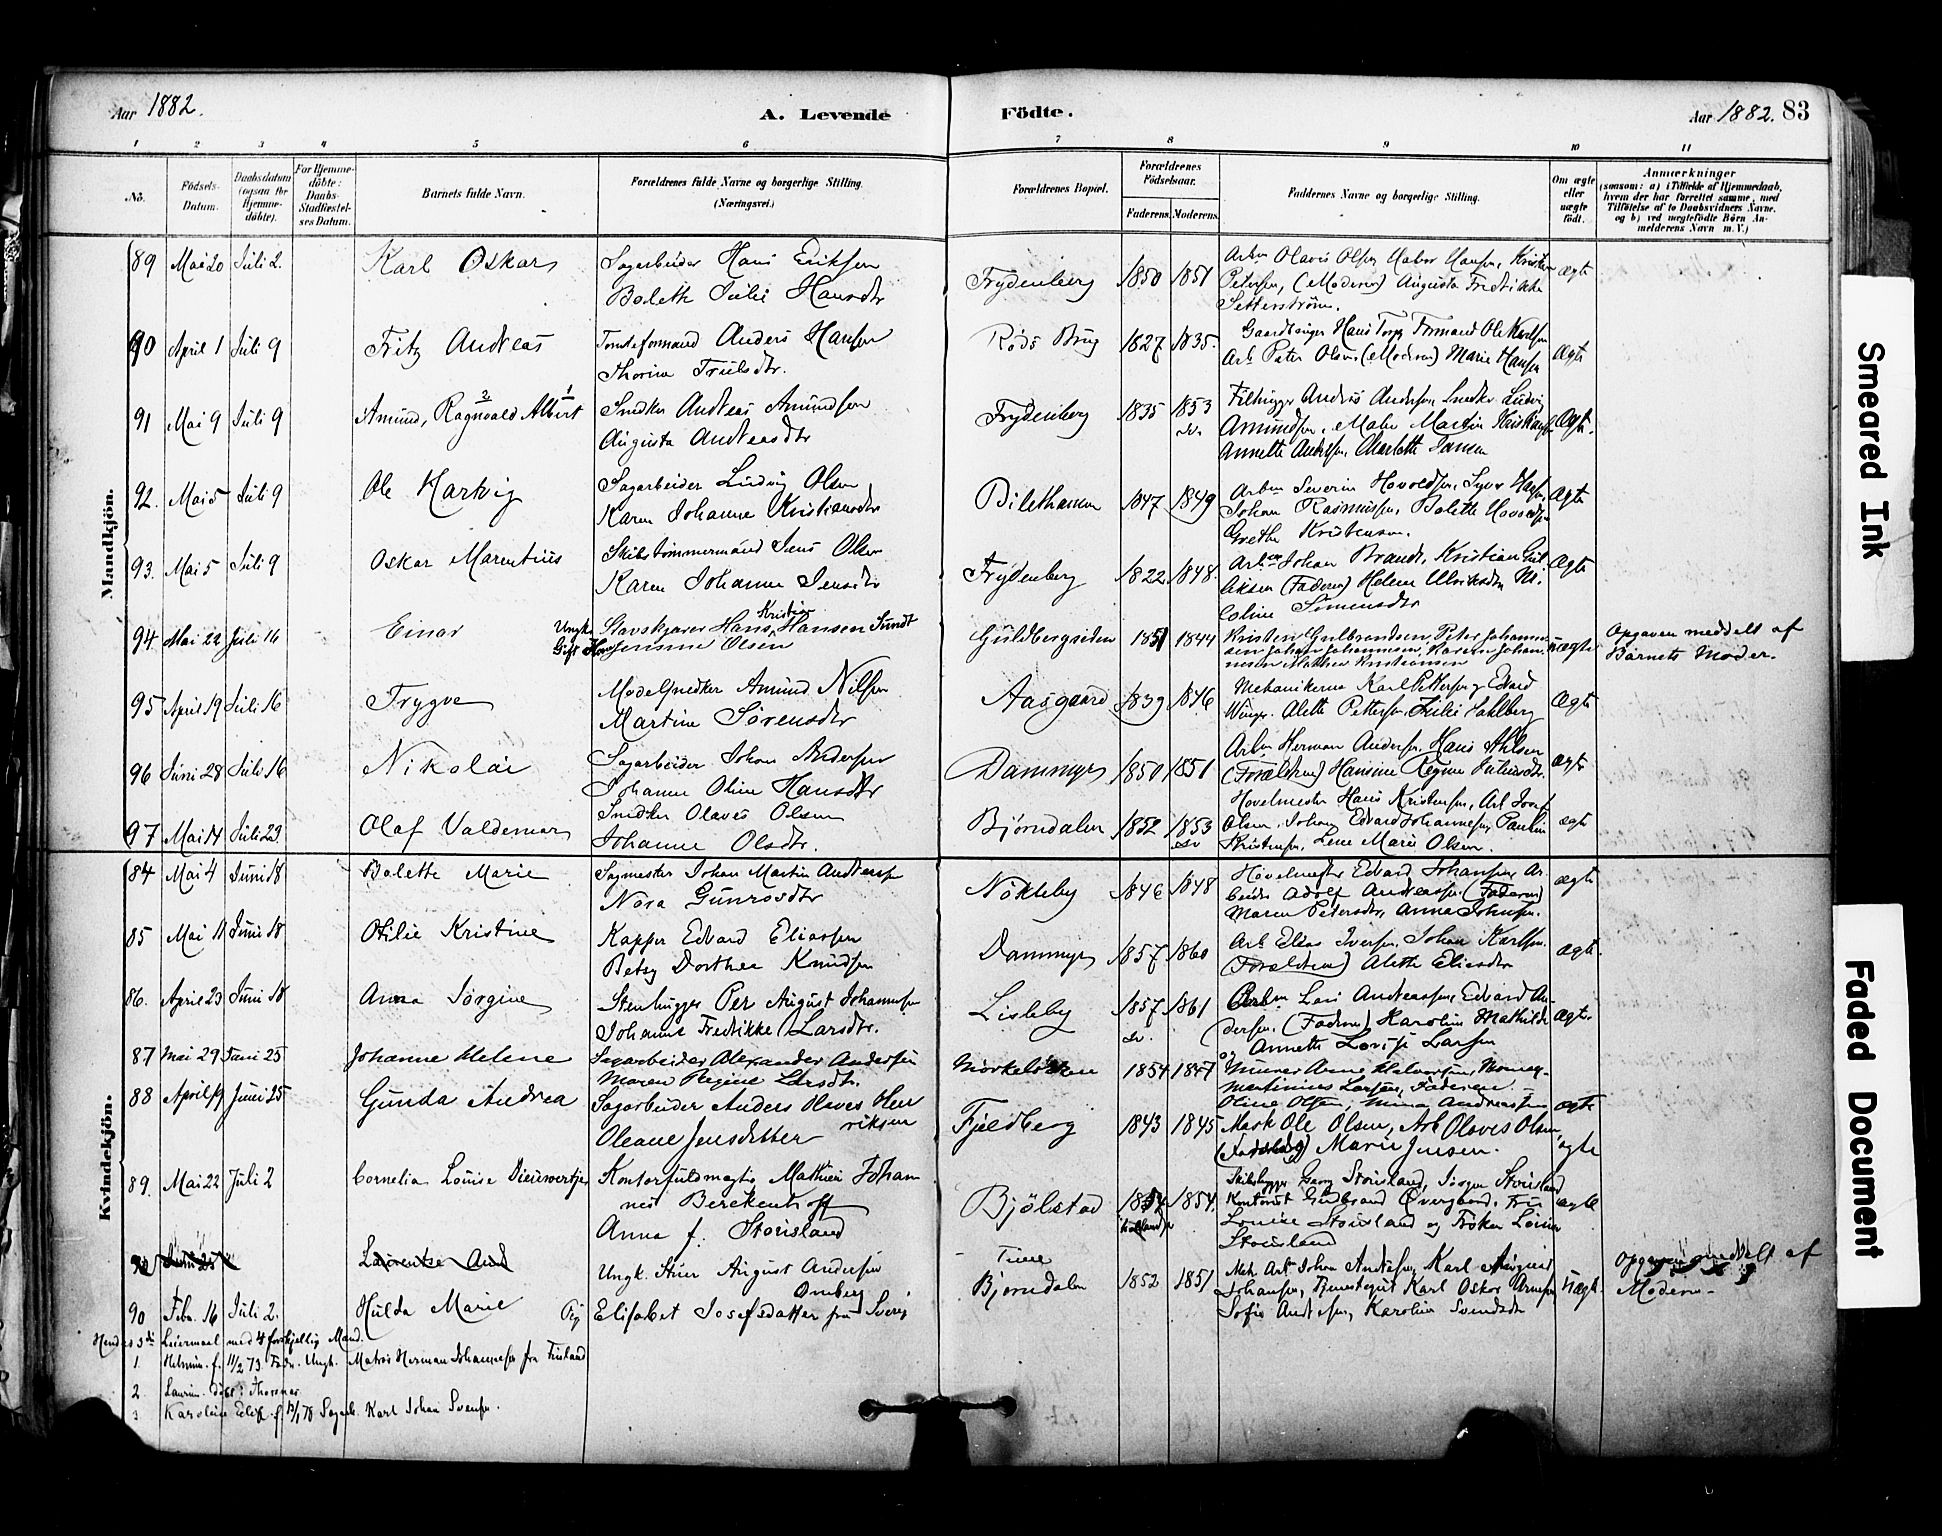 Aar 1882.
A. Levende
Födte.
Aar 1882. 83
1 2 3 4 5 6 7 8 9 10 11
No.
Födsels-Datum.
Daabsdatum (ogsaa for Hjemme-döbte).
For Hjemme-döbte: Daabs-Stadfæstel-ses Datum.
Barnets fulde Navn.
Forældrenes fulde Navne og borgerlige Stilling. (Næringsvei.)
Forældrenes Bopæl.
Forældrenes Födselsaar.
Faderens. Moderens.
Faddernes Navne og borgerlige Stilling.
Om ægte eller uægte födt.
Anmærkninger
(saasom: a) i Tilfælde af Hjemmedaab,
hvem der har forrettet samme, med
Tilföielse af to Daabsvidners Navne,
og b) ved uægtefödte Börn An-
melderens Navn m. V.)
Mandkjön.
89 Mai 20 Juli 2. Karl Oskar Sagarbeider Hans Eriksen
Bolette Julie Hansdtr Frydenberg 1850 1851 Arbm Olavis Olsen
Petersen, (Moderen) Augusta Fredrikke
Setterström. ægte
90 April 1 Juli 9 Fritz Andreas Tomteformand Anders Hansen
Thorine Trulsdtr. Röds Brug 1827 1835. Gaardbruger Hans Torp, Formand Ole Karlsen
Arb. Peter Olsen (Moderen) Marie Hansen Ægte
91 Mai 9 Juli 9 Amund, Ragnvald Albert Snedker Andreas Amundsen
Augusta Andreasdtr Frydenberg 1835 1853 Filhugger Andreas Andersen, Snedker Ludvig
Amundsen, Maler Martin Kristiansen
Annette Andersen, Charlotte Jansen Ægte.
92. Mai 5 Juli 9 Ole Hartvig Sagarbeider Ludvig Olsen
Karen Johanne Kristiansdtr 1847 1849 Arbm Severin
Johan Rasmussen, Bolette
Grethe Kristensen. Ægte
93. Mai 5 Juli 9 Oskar Marentius Skibstömmermand Jens Olsen
Karen Johanne Jensdtr Frydenberg 1822 1848. Arb. Johan Brandt, Kristian
(Faderen) Helene Ulriksdtr
Simensdtr Ægte
94 Mai 22 Juli 16 Einar Ungk. Stavskjærer Hans Kristian Hansen Sundt
Gift Kone Jensine Olsen Guldbergsiden 1851 1844 Kristen Gulbrandsen, Peter Johannes-
sen Johan Johannesen, Karen Johan-
nesen Mathea Kristiansen uægte Opgaven meddelt af
Barnets Moder.
95 April 19 Juli 16 Trygve Modelsnedker Amund Nilsen
Martine Sörensdtr Aasgaard 1839 1846 Mekanikerne Karl Pettersen, Edvard
Winger. Alette Pettersen, Julie Dahlberg Ægte
96 Juni 28 Juli 16 Nikolai Sagarbeider Johan Andersen
Johanne Oline Hansdtr Dammyr 1850 1851 Arbm Herman Andersen, Hans Ahlsen
(Forældrene) Hansine Regine Juliusdtr. ægte
97 Mai 14 Juli 23 Olaf Valdemar Snedker Olaves Olsen
Johanne Olsdtr. Björndalen 1852 1853 Hovelmester Hans Kristensen, Arb Josef
Olsen, Johan Edvard Johannesen, Pauline
Kristensen, Lene Marie Olsen. ægte
Kvindekjön.
84 Mai 4 Juni 18 Bolette Marie Sagmester Johan Martin Andreassen
Nora Gunrosdtr Nökleby 1846 1848 Hövelmester Edvard Johansen, Ar-
beider Adolf Andreassen (Faderen)
Maren Petersdtr, Anna Johnsen. ægte
85 Mai 11 Juni 18 Otilie Kristine Kapper Edvard Eliassen
Betsy Dorthea Knudsen Dammyr 1857 1860 Arb. Elias Iversen, Johan Karlsen.
(Forældrene) Alette Eliasdtr ægte.
86. April 23 Juni 18 Anna Jörgine Stenhugger Per August Johannesen
Johanne Fredrikke Larsdtr. Lisleby 1857 1861 Arbm Lars Andreassen, Edvard An-
dersen. (Faderen) Karoline Mathilde
og Annette Lovise Larsen ægte.
87 Mai 29 Juni 25 Johanne Helene Sagarbeider Alexander Andersen
Maren Regine Larsdtr. 1854 1847 Murer Arne Halvorsen,
Martinius Larsen, Faderen.
Oline Olsen, Mina Andreassen ægte
88 April 19 Juni 25 Gunda Andrea Sagarbeider Anders Olaves Hen
riksen
Oleane Jensdatter Fjeldberg 1843 1845 Mask Ole Olsen, Arb Olaves Olsen,
Marie Jensen. ægte
89. Mai 22 Juli 2 Cornelia Louise Dieuwertje Kontorfuldmægtig Mathies Johan
nes Berckenhoff
Anna f. Storisland Bjölstad 1854 1854. Skibsbygger Georg Storisland, Jörgen Storisland
Kontorist Gudbrand Overgaard, Fru
Louise Storisland og Fröken Lovise
Storisland ægte
90 Juni 25 Laurentse And
90 Febr. 16 Juli 2. Hulda Marie Ungk. Stuer August Andersen
Omberg
Pig Elisabet Josefsdatter fra Sverig Tune
Björndalen 1852 1851 Mek. Arb. Johan Andersen, Karl
Johansen, Tjenestegut Karl Oskar Arnesen
Sofie Andersen, Karoline Svendsdtr Uægt. Opgaven meddelt af
Moderen
Hendes 3die Leiermaal med 4 forskjellig Mand.
1. Helmin. f. 11/2 73. Fader Ungk. Matros Herman Johannesen fra Finland
2.
3 Karoline Elis. f. Sagarb. Karl Johan Svensen.
Smeared Ink
Faded Document